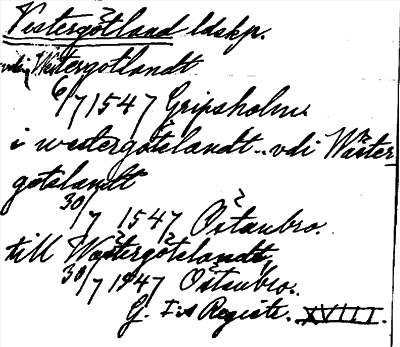 Vestergötland ldskp.
vdi Westergotlandt
6/7 1547 Gripsholm.
i westergötslandt.. vdi Wäster
götslandt
30/7 1547 Östanbro.
till Wästergötzlandt,
30/7 1547 Östanbro.
G. I:s Registr. XVIII.